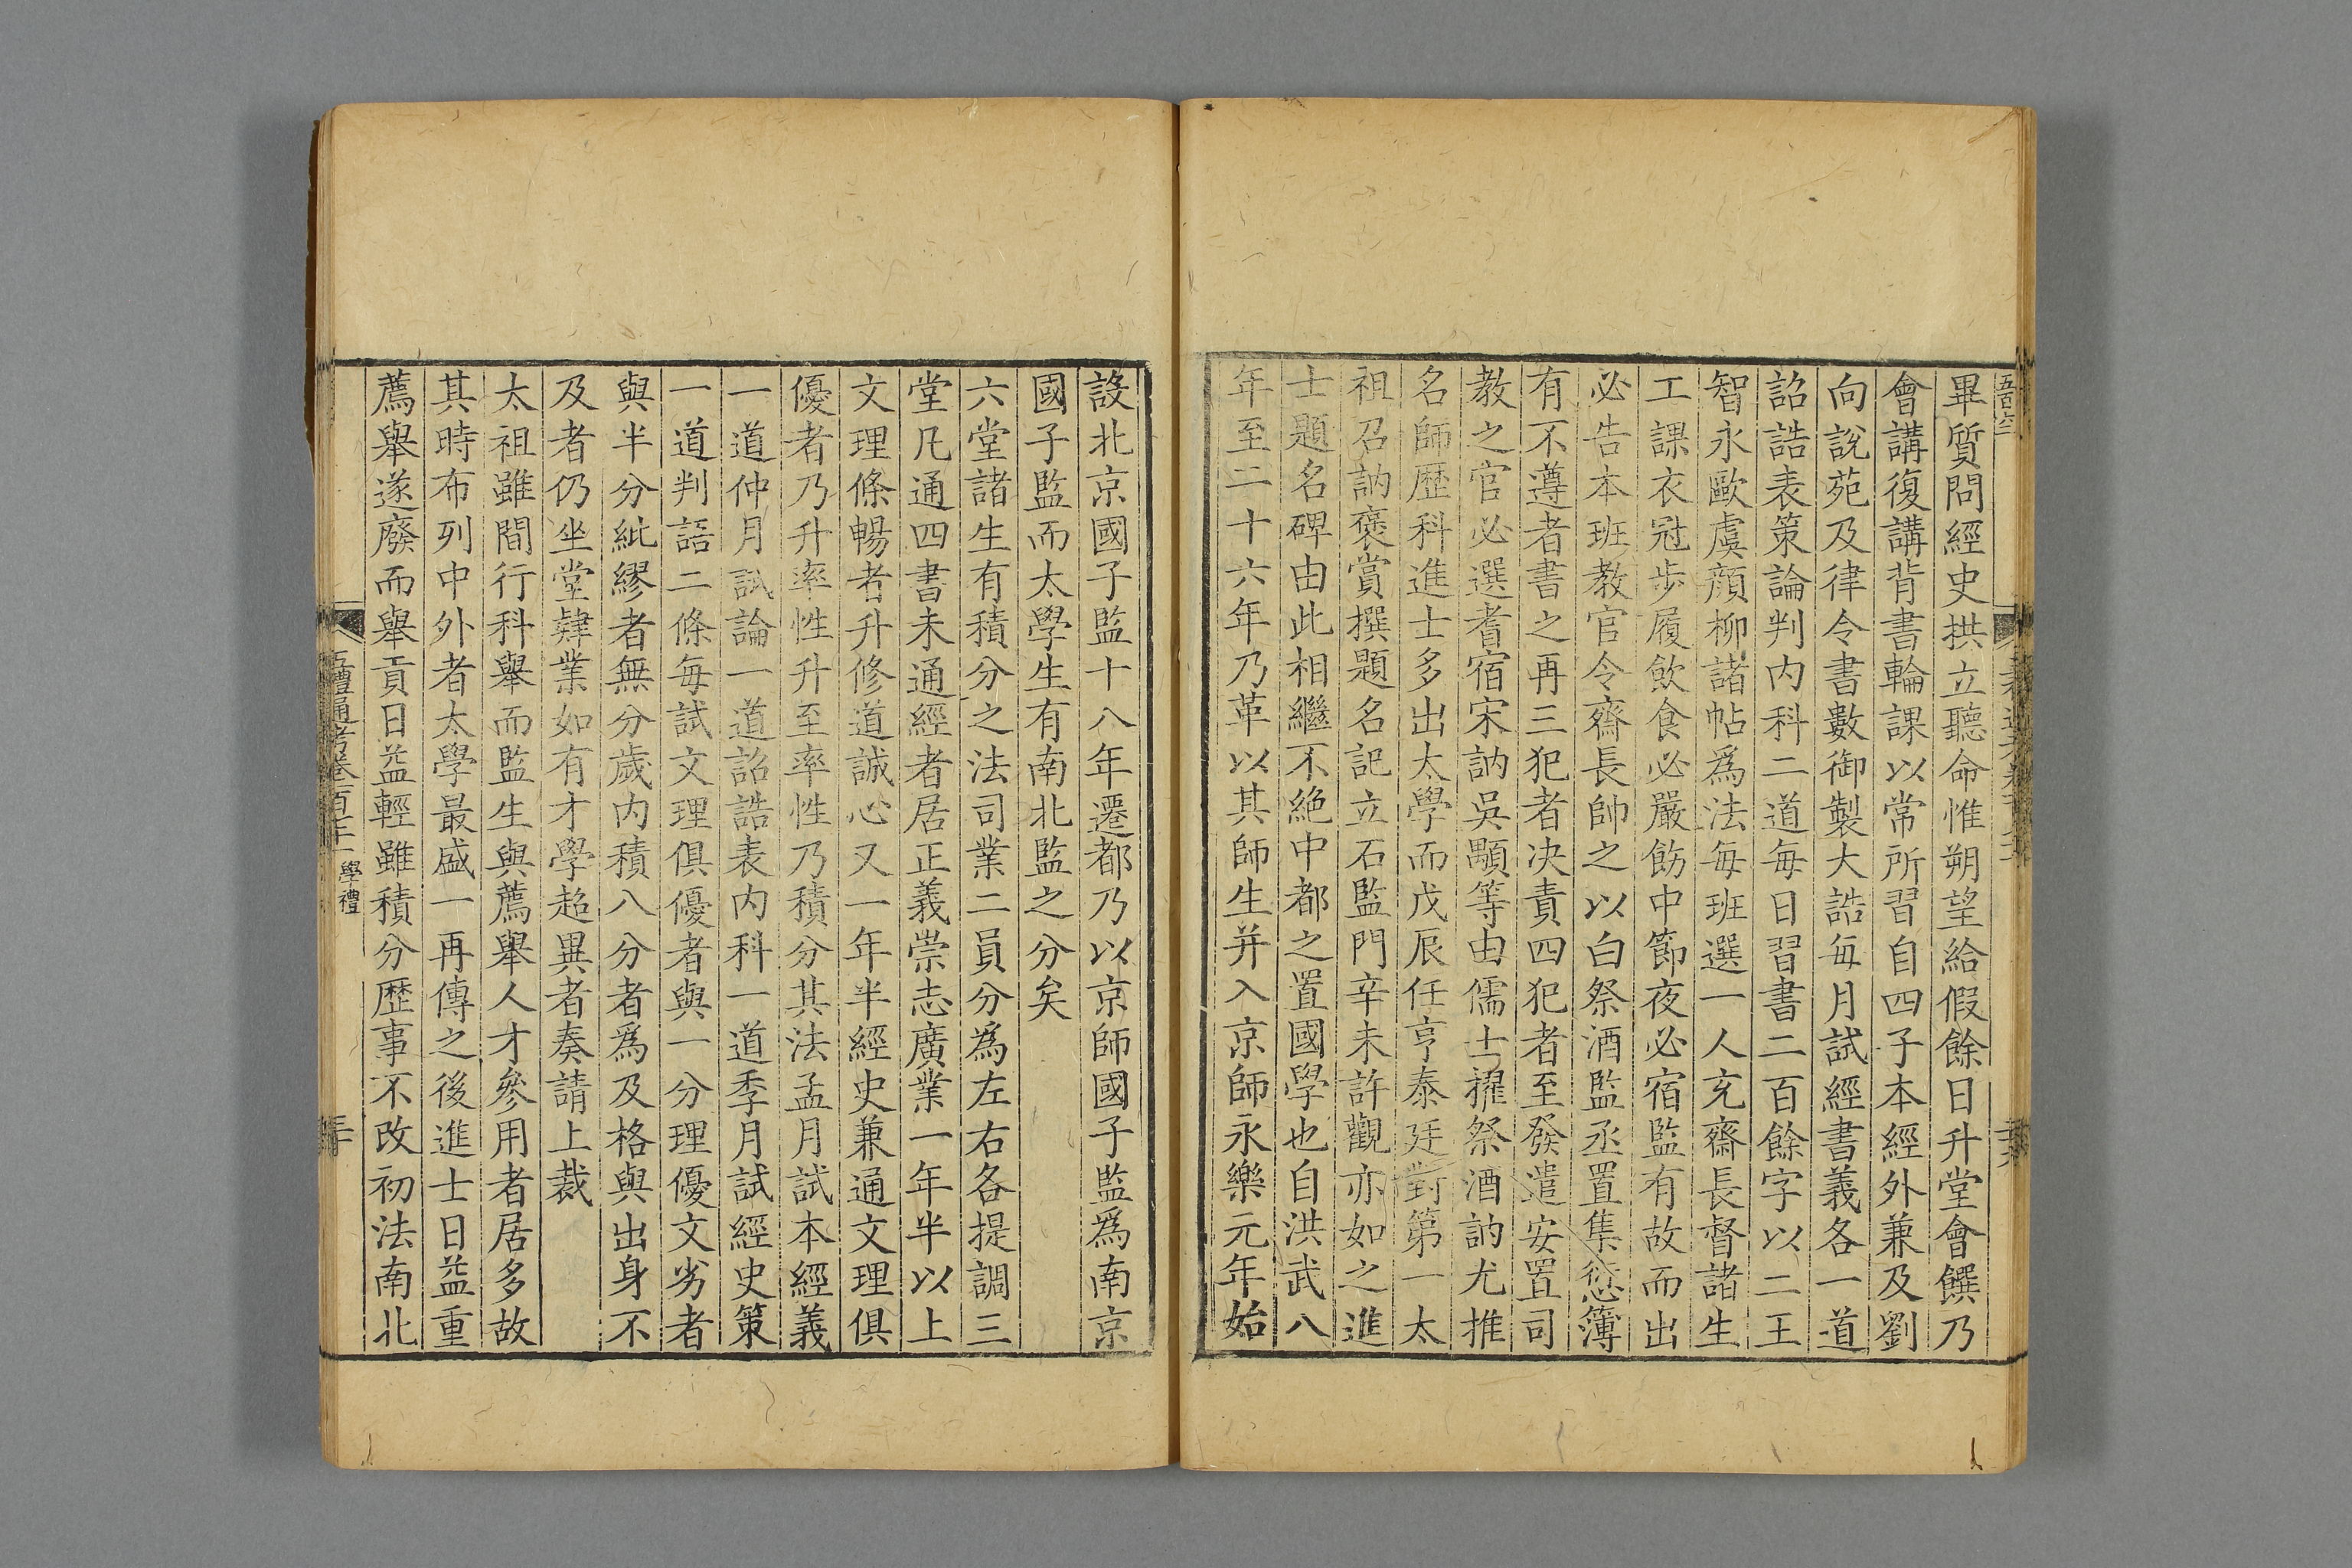 畢質問經史拱立聽命惟朔望給假餘日升堂會饌乃
會講復講背書輪課以常所習自四子本經外兼及劉
向說苑及律令書數御製大誥每月試經書義各一道
詔誥表策論判內科二道每日習書二百餘字以二王
智永歐虞顔柳諸帖爲法每班選一人充齋長督諸生
工課衣冠步履飲食必嚴飭中節夜必宿監有故而出
必告本班教官令齋長帥之以白祭酒監丞置集愆簿
有不遵者書之再三犯者決責四犯者至發遣安置司
教之官必選耆宿宋訥吳顒等由儒士擢祭酒訥尤推
名師歷科進士多出太學而戊辰任亨泰廷對第一太
祖召訥褒賞撰題名記立石監門辛未許觀亦如之進
士題名碑由此相繼不絶中都之置國學也自洪武八
年至二十六年乃革以其師生并入京師永樂元年始
設北京國子監十八年遷都乃以京師國子監爲南京
國子監而太學生有南北監之分矣
六堂諸生有積分之法司業二員分爲左右各提調三
堂凡通四書未通經者居正義崇志廣業一年半以上
文理條暢者升修道誠心又一年半經史兼通文理俱
優者乃升率性升至率性乃積分其法孟月試本經義
一道仲月試論一道詔誥表內科一道季月試經史策
一道判語二條每試文理俱優者與一分理優文劣者
與半分紕繆者無分歲內積八分者爲及格與出身不
及者仍坐堂肄業如有才學超異者奏請上裁
太祖雖間行科舉而監生與薦舉人才參用者居多故
其時布列中外者太學最盛一再傳之後進士日益重
薦舉遂廢而舉貢日益輕雖積分歷事不改初法南北
五禮通考卷一百七十一 學禮